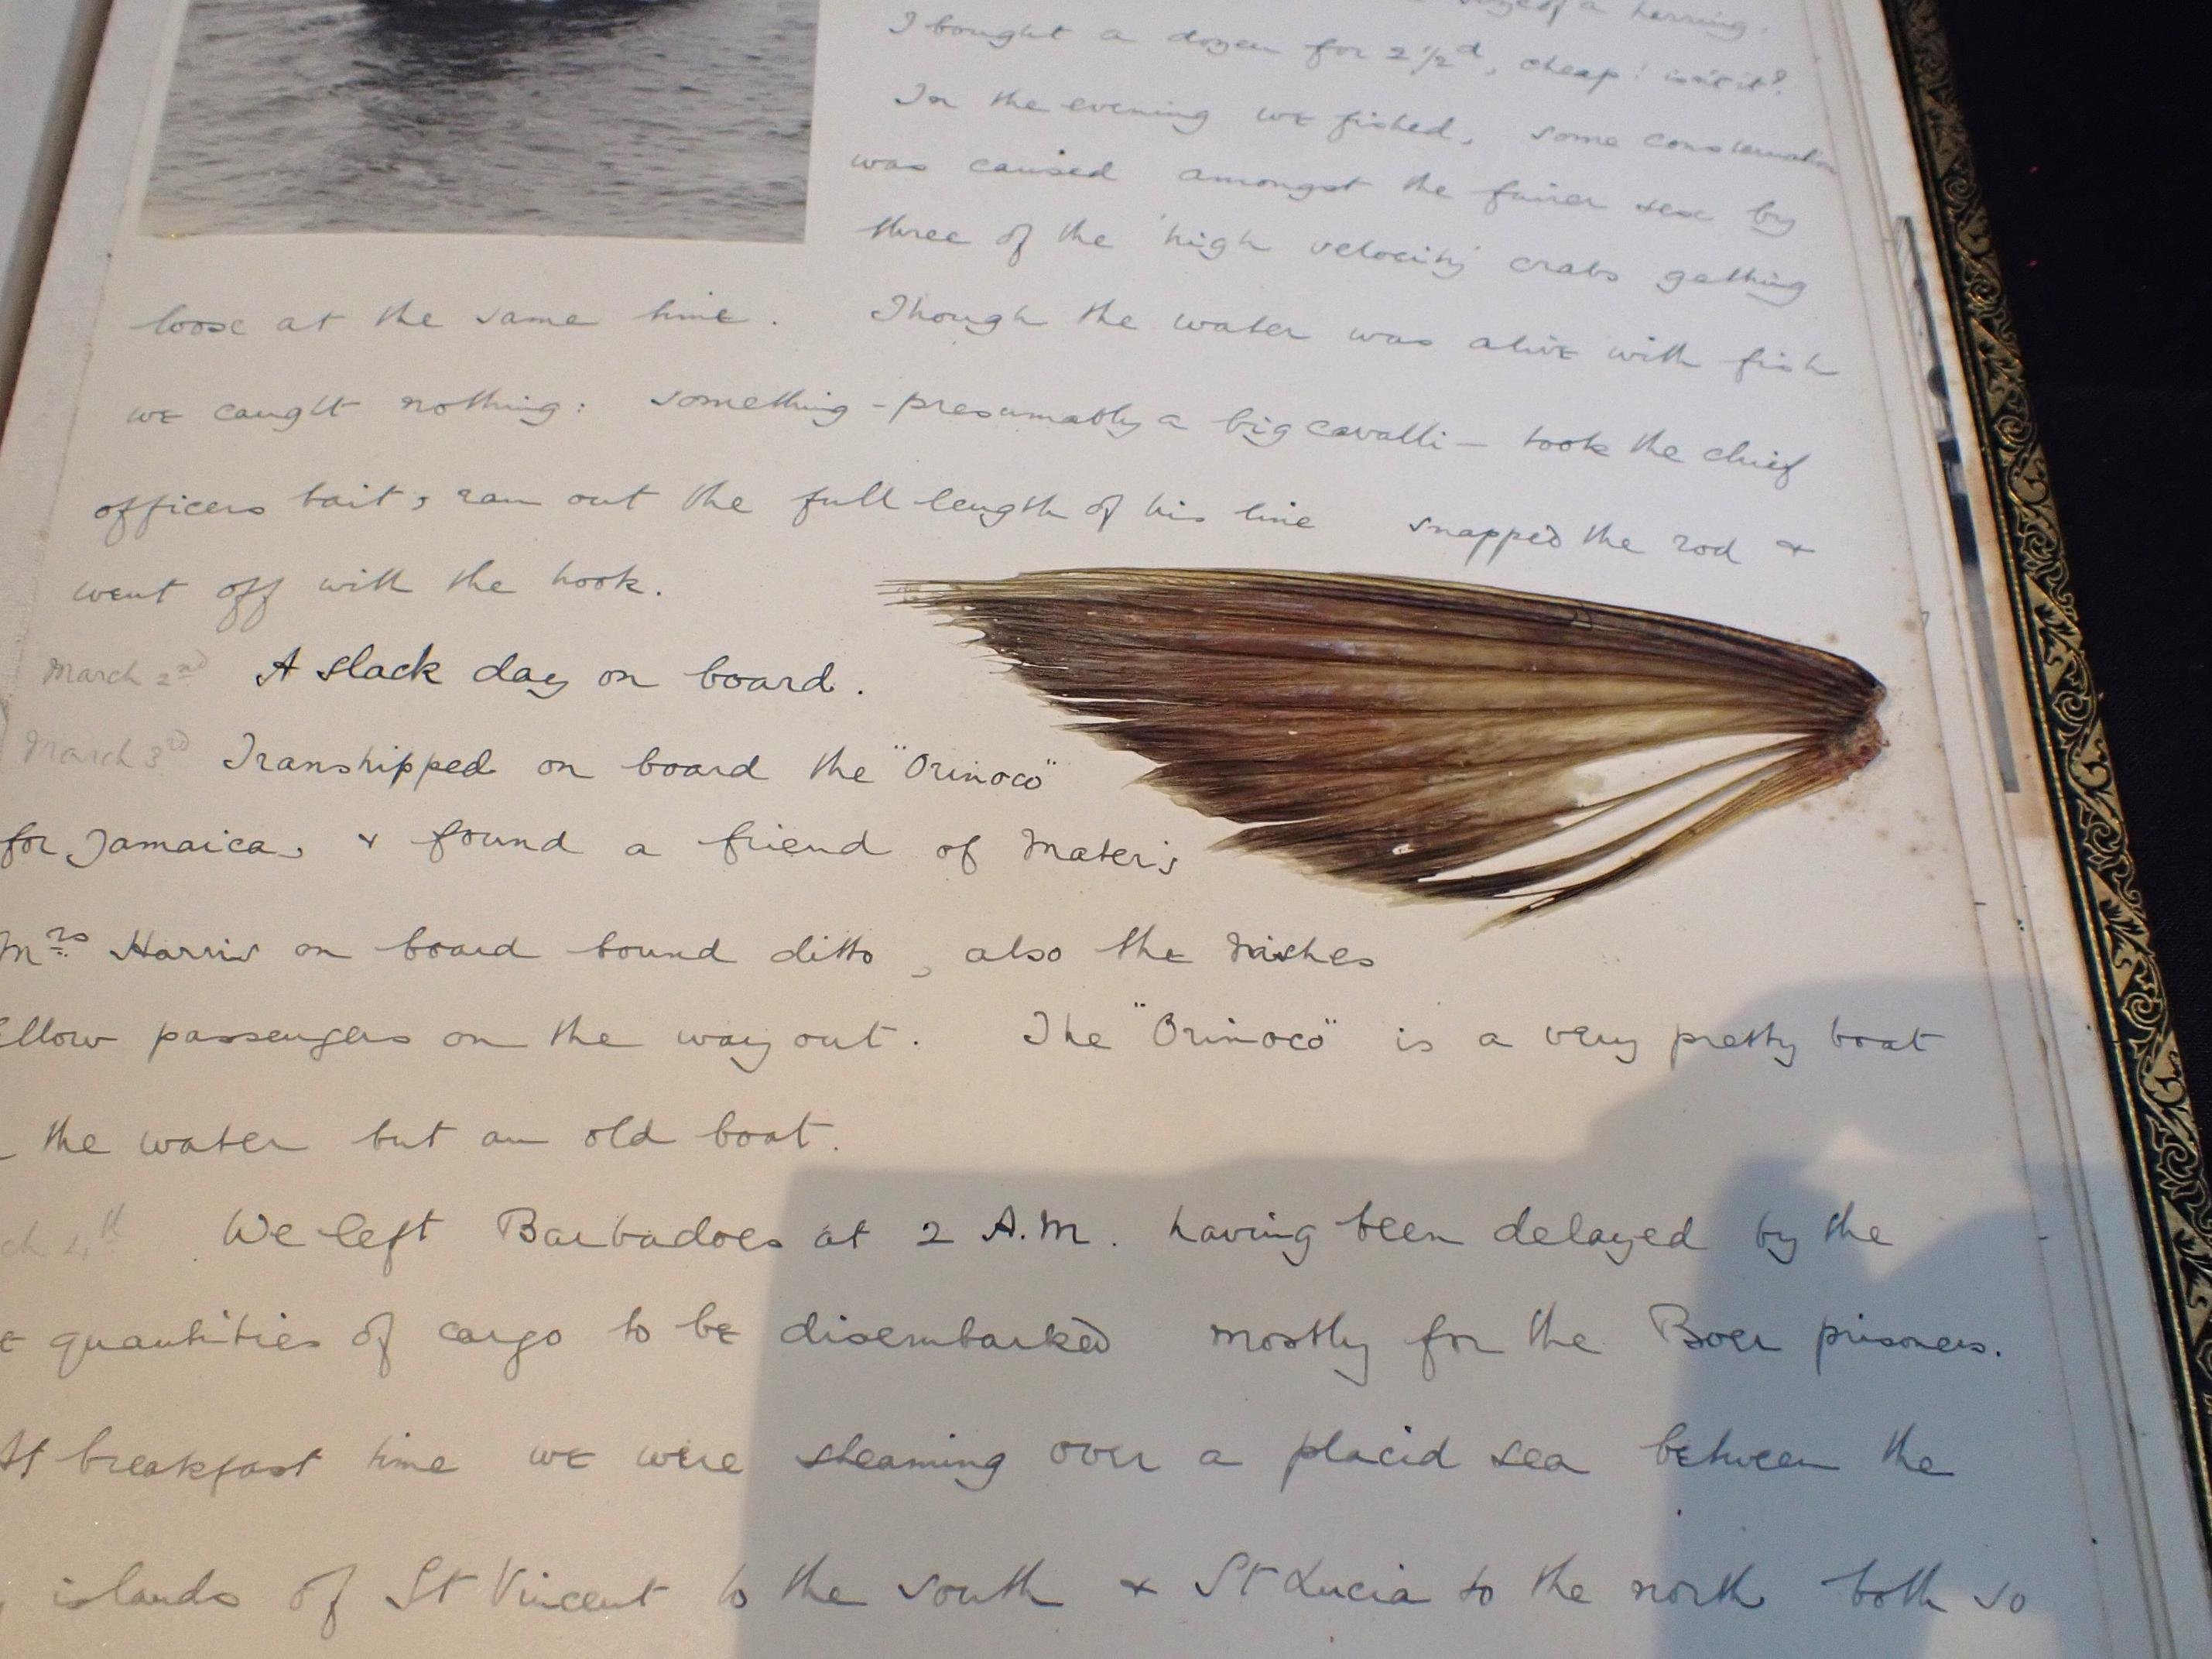 of a herring.
I bought a dozen for 2 1/2d, cheap! isn't it?
In the evening we fished, some consternation
was caused amongst the fairer sex by
three of the 'high velocity' crabs getting
loose at the same time. Though the water was alive with fish
we caught nothing: something - presumably a big cavalli - took the chief
officers bait, ran out the full length of his line snapped the rod &
went off with the hook.
March 2nd A slack day on board.
March 3rd Transhipped on board the "Orinoco"
for Jamaica, & found a friend of Mater's
Mrs Harris on board bound ditto, also the
ellow passengers on the way out. The "Orinoco" is a very pretty boat
the water but an old boat.
ch 4th We left Barbadoes at 2 A.M. having been delayed by the
quantities of cargo to be disembarked mostly for the Boer prisoners.
At breakfast time we were steaming over a placid sea between the
islands of St Vincent to the south & St Lucia to the north both so